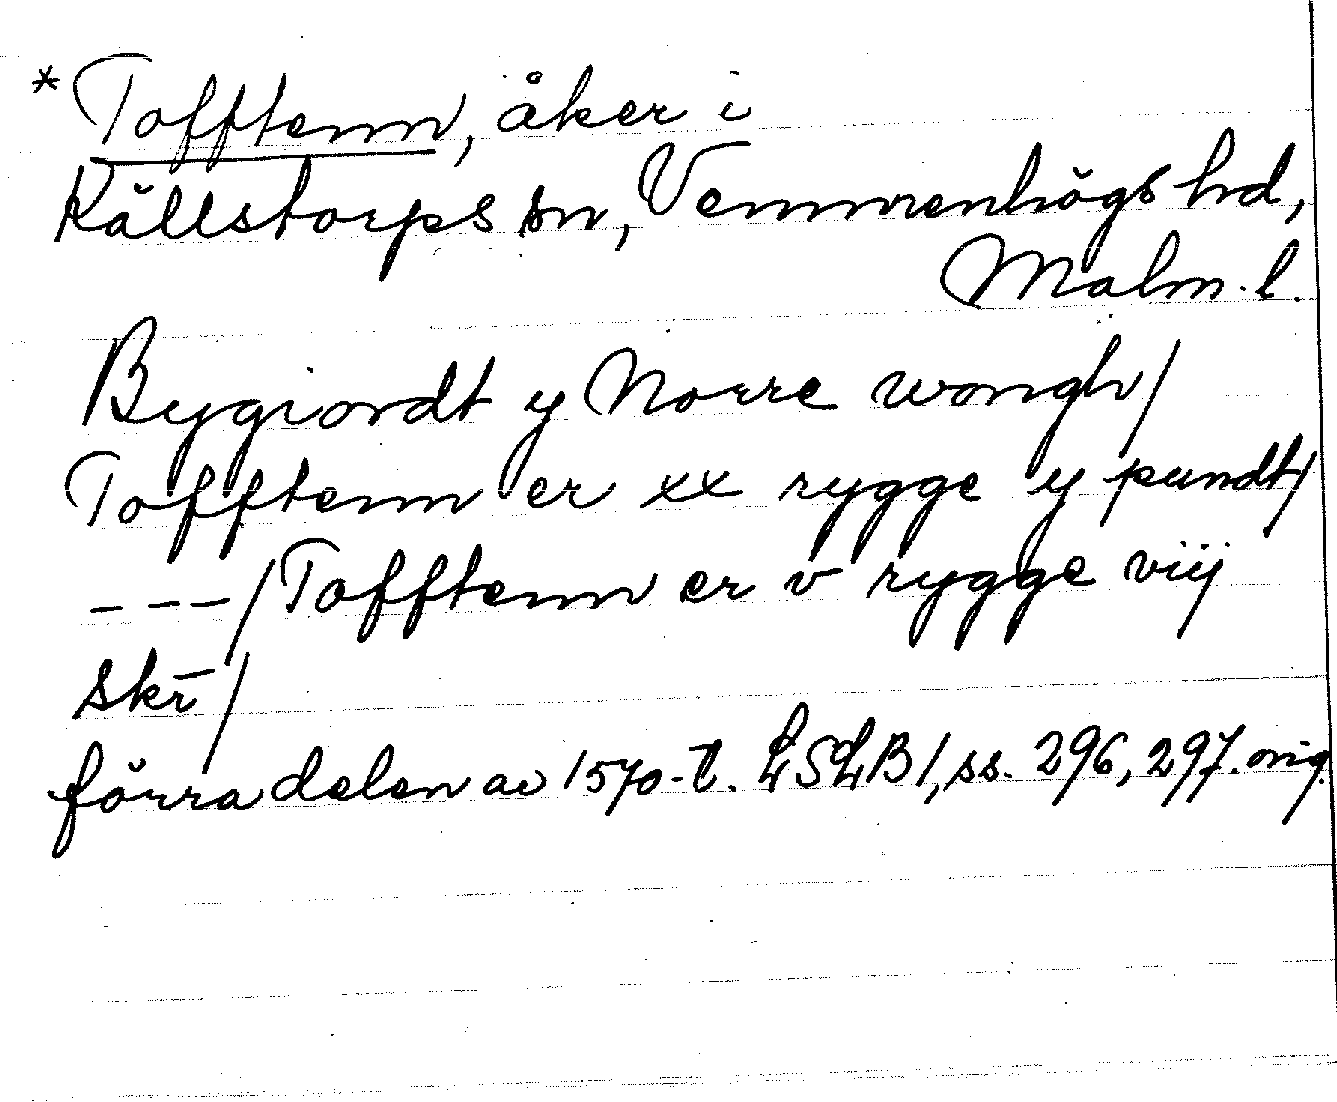 *Tofftenn, åker i
Källstorps sn, Vemmenhögs hd,
Malm. l.
Bygiordt y Norre wongh/
Tofftenn er xx rygge y pundt/
---/Tofftenn er v rygge viij
skr̄/
förra delen av 1570-t. LSLB1, ss. 296, 297. orig.